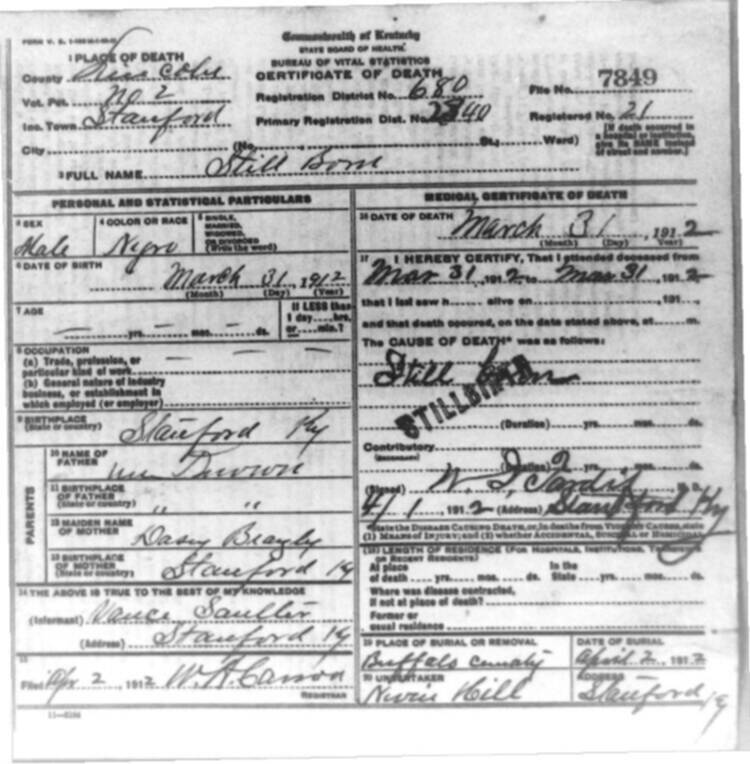 Commonwealth of Kentucky
STATE BOARD OF HEALTH
BUREAU OF VITAL STATISTICS
CERTIFICATE OF DEATH
1 PLACE OF DEATH
County
Vot. Pct. No 2
Inc. Town Stanford
City
Registration District No. 680
Primary Registration Dist. No.
File No. 7849
Registered No. 21
(No. St., Ward)
[If death occurred in a hospital or institution, give its NAME instead of street and number.]
2 FULL NAME Still Born
PERSONAL AND STATISTICAL PARTICULARS
3 SEX
Male
4 COLOR OR RACE
Negro
5 SINGLE, MARRIED, WIDOWED, OR DIVORCED (Write the word)
6 DATE OF BIRTH
March 31, 1912
(Month) (Day) (Year)
7 AGE
yrs. mos. ds.
If LESS than 1 day hrs. or min.?
8 OCCUPATION
(a) Trade, profession, or particular kind of work
(b) General nature of industry business, or establishment in which employed (or employer)
9 BIRTHPLACE
(State or country) Stanford Ky
PARENTS
10 NAME OF FATHER
11 BIRTHPLACE OF FATHER
(State or country) " "
12 MAIDEN NAME OF MOTHER
13 BIRTHPLACE OF MOTHER
(State or country) Stanford Ky
14 THE ABOVE IS TRUE TO THE BEST OF MY KNOWLEDGE
(Informant) Vance
(Address) Stanford Ky
15
Filed Apr 2, 1912
REGISTRAR
11-3184
MEDICAL CERTIFICATE OF DEATH
16 DATE OF DEATH
March 31 1912
(Month) (Day) (Year)
17 I HEREBY CERTIFY, That I attended deceased from
Mar 31 1912 to Mar 31 1912
that I last saw h alive on , 191
and that death occured, on the date stated above, at m.
The CAUSE OF DEATH* was as follows:
Still born
STILLBIRTH
(Duration) yrs. mos. ds.
Contributory
(Duration) yrs. mos. ds.
(Signed) M. D.
4/1 1912 (Address) Stanford Ky
*State the DISEASE CAUSING DEATH, or, in deaths from VIOLENT CAUSES, state
(1) MEANS OF INJURY; and (2) whether ACCIDENTAL, SUICIDAL or HOMICIDAL
(18) LENGTH OF RESIDENCE (FOR HOSPITALS, INSTITUTIONS, TRANSIENTS
OR RECENT RESIDENTS)
At place of death yrs. mos. ds. In the State yrs. mos. ds.
Where was disease contracted,
if not at place of death?
Former or
usual residence
19 PLACE OF BURIAL OR REMOVAL
Buffalo
DATE OF BURIAL
April 2 1912
20 UNDERTAKER
Hill
ADDRESS
Stanford Ky